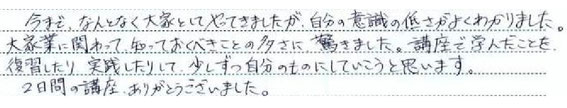 今まで、なんとなく大家としてやってきましたが、自分の意識の低さがよくわかりました。
大家業に関わって、知っておくべきことの多さに、驚きました。講座で学んだことを、
復習したり、実践したりして、少しずつ自分のものにしていこうと思います。
2日間の講座、ありがとうございました。